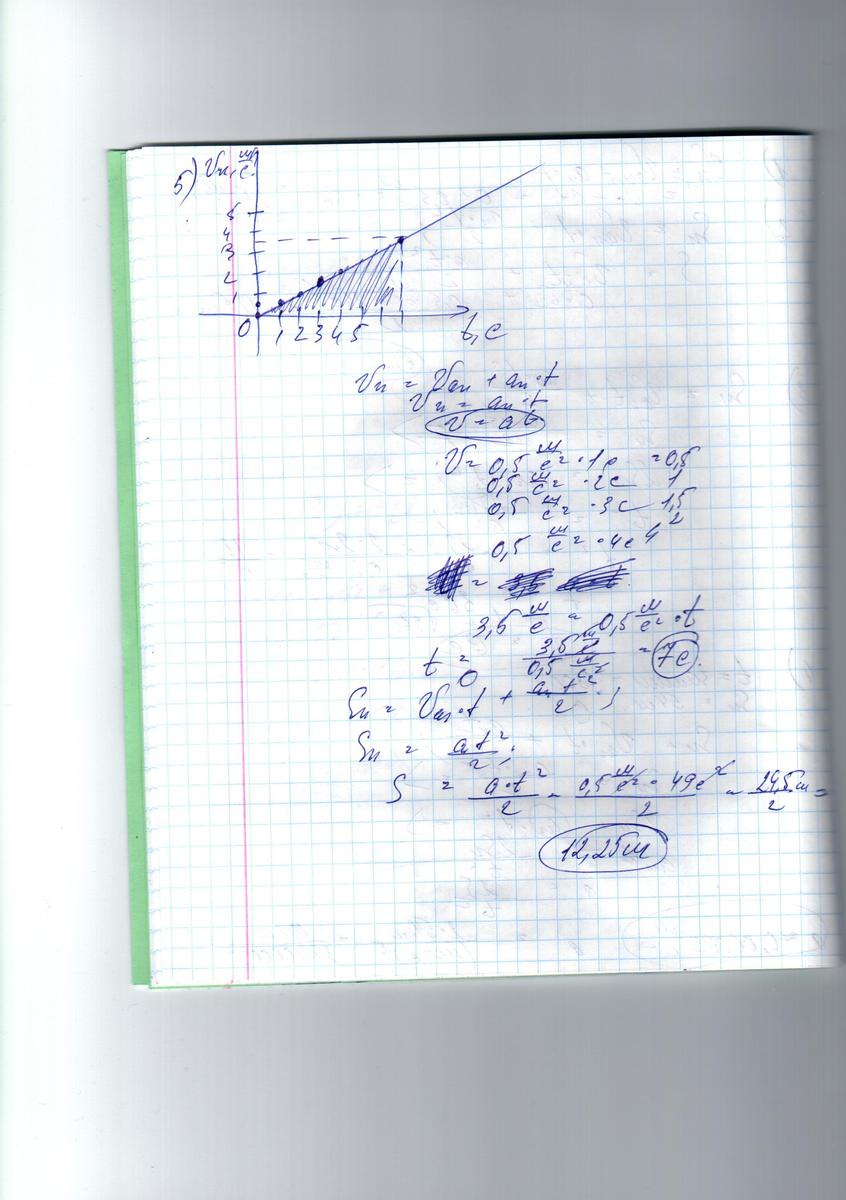 5) Vx, м/с
5
4
3
2
1
0 1 2 3 4 5 t, c
Vx = V₀x + ax·t
Vx = ax·t
V = at
V = 0,5 м/с² · 1с = 0,5
0,5 м/с² · 2с 1
0,5 м/с² · 3с 1,5
0,5 м/с² · 4с 2
3,5 м/с = 0,5 м/с² · t
t = 3,5 м/с / 0,5 м/с² = 7с.
Sx = V₀x·t + axt²/2 ;
Sx = axt²/2 ;
S = a·t²/2 = 0,5 м/с² · 49с²/2 = 24,5м/2 =
12,25м